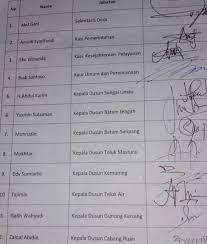 No Nama Jabatan
1. Abd Gani Sekretaris Desa
2. Kasi Pemerintahan
3. Eko Winanda Kasi Kesejahteraan Pelayanan
4. Budi Santoso Kaur Umum dan Perencanaan
5 H.Abdul Karim Kepala Dusun Sungai Limau
6 Yazmin Sulaiman Kepala Dusun
7 Mahruzin Kepala Dusun
8 Mokhtar Kepala Dusun Teluk
9 Edy Sumarto Kepala Dusun Kemuning
10 Tajimin Kepala Dusun Teluk Air
1. Galih Wahyudi Kepala Dusun Gunung
2. Zainal Abidin Kepala Dusun Cabang Ruan